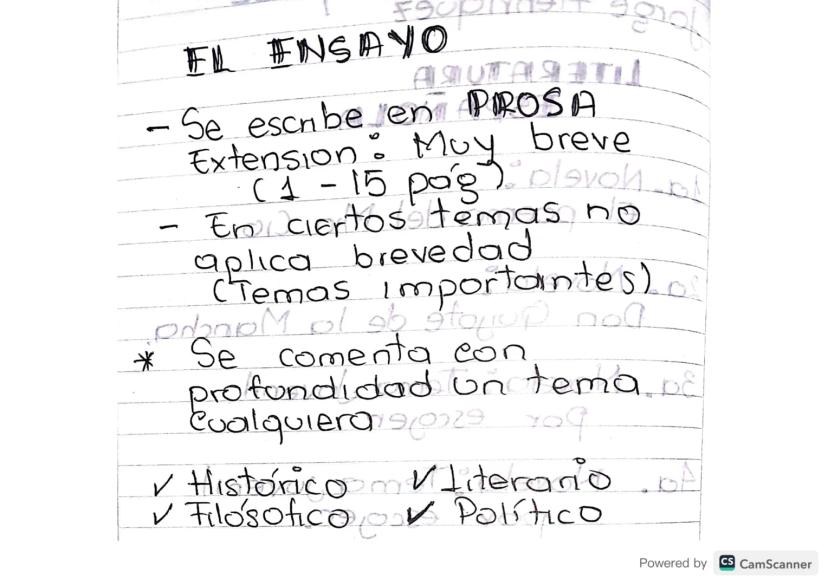 EL ENSAYO
- Se escribe en PROSA
Extension: Muy breve
(1 - 15 pág).
- En ciertos temas no
aplica brevedad
(Temas importantes)
* Se comenta con
profundidad un tema
cualquiera
✓ Histórico ✓ Literario
✓ Filósofico ✓ Político
Powered by CS CamScanner